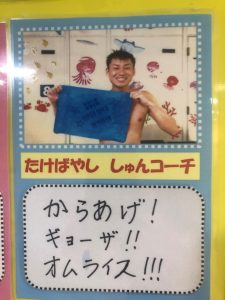 たけばやし しゅんコーチ
からあげ！
ギョーザ！！
オムライス！！！